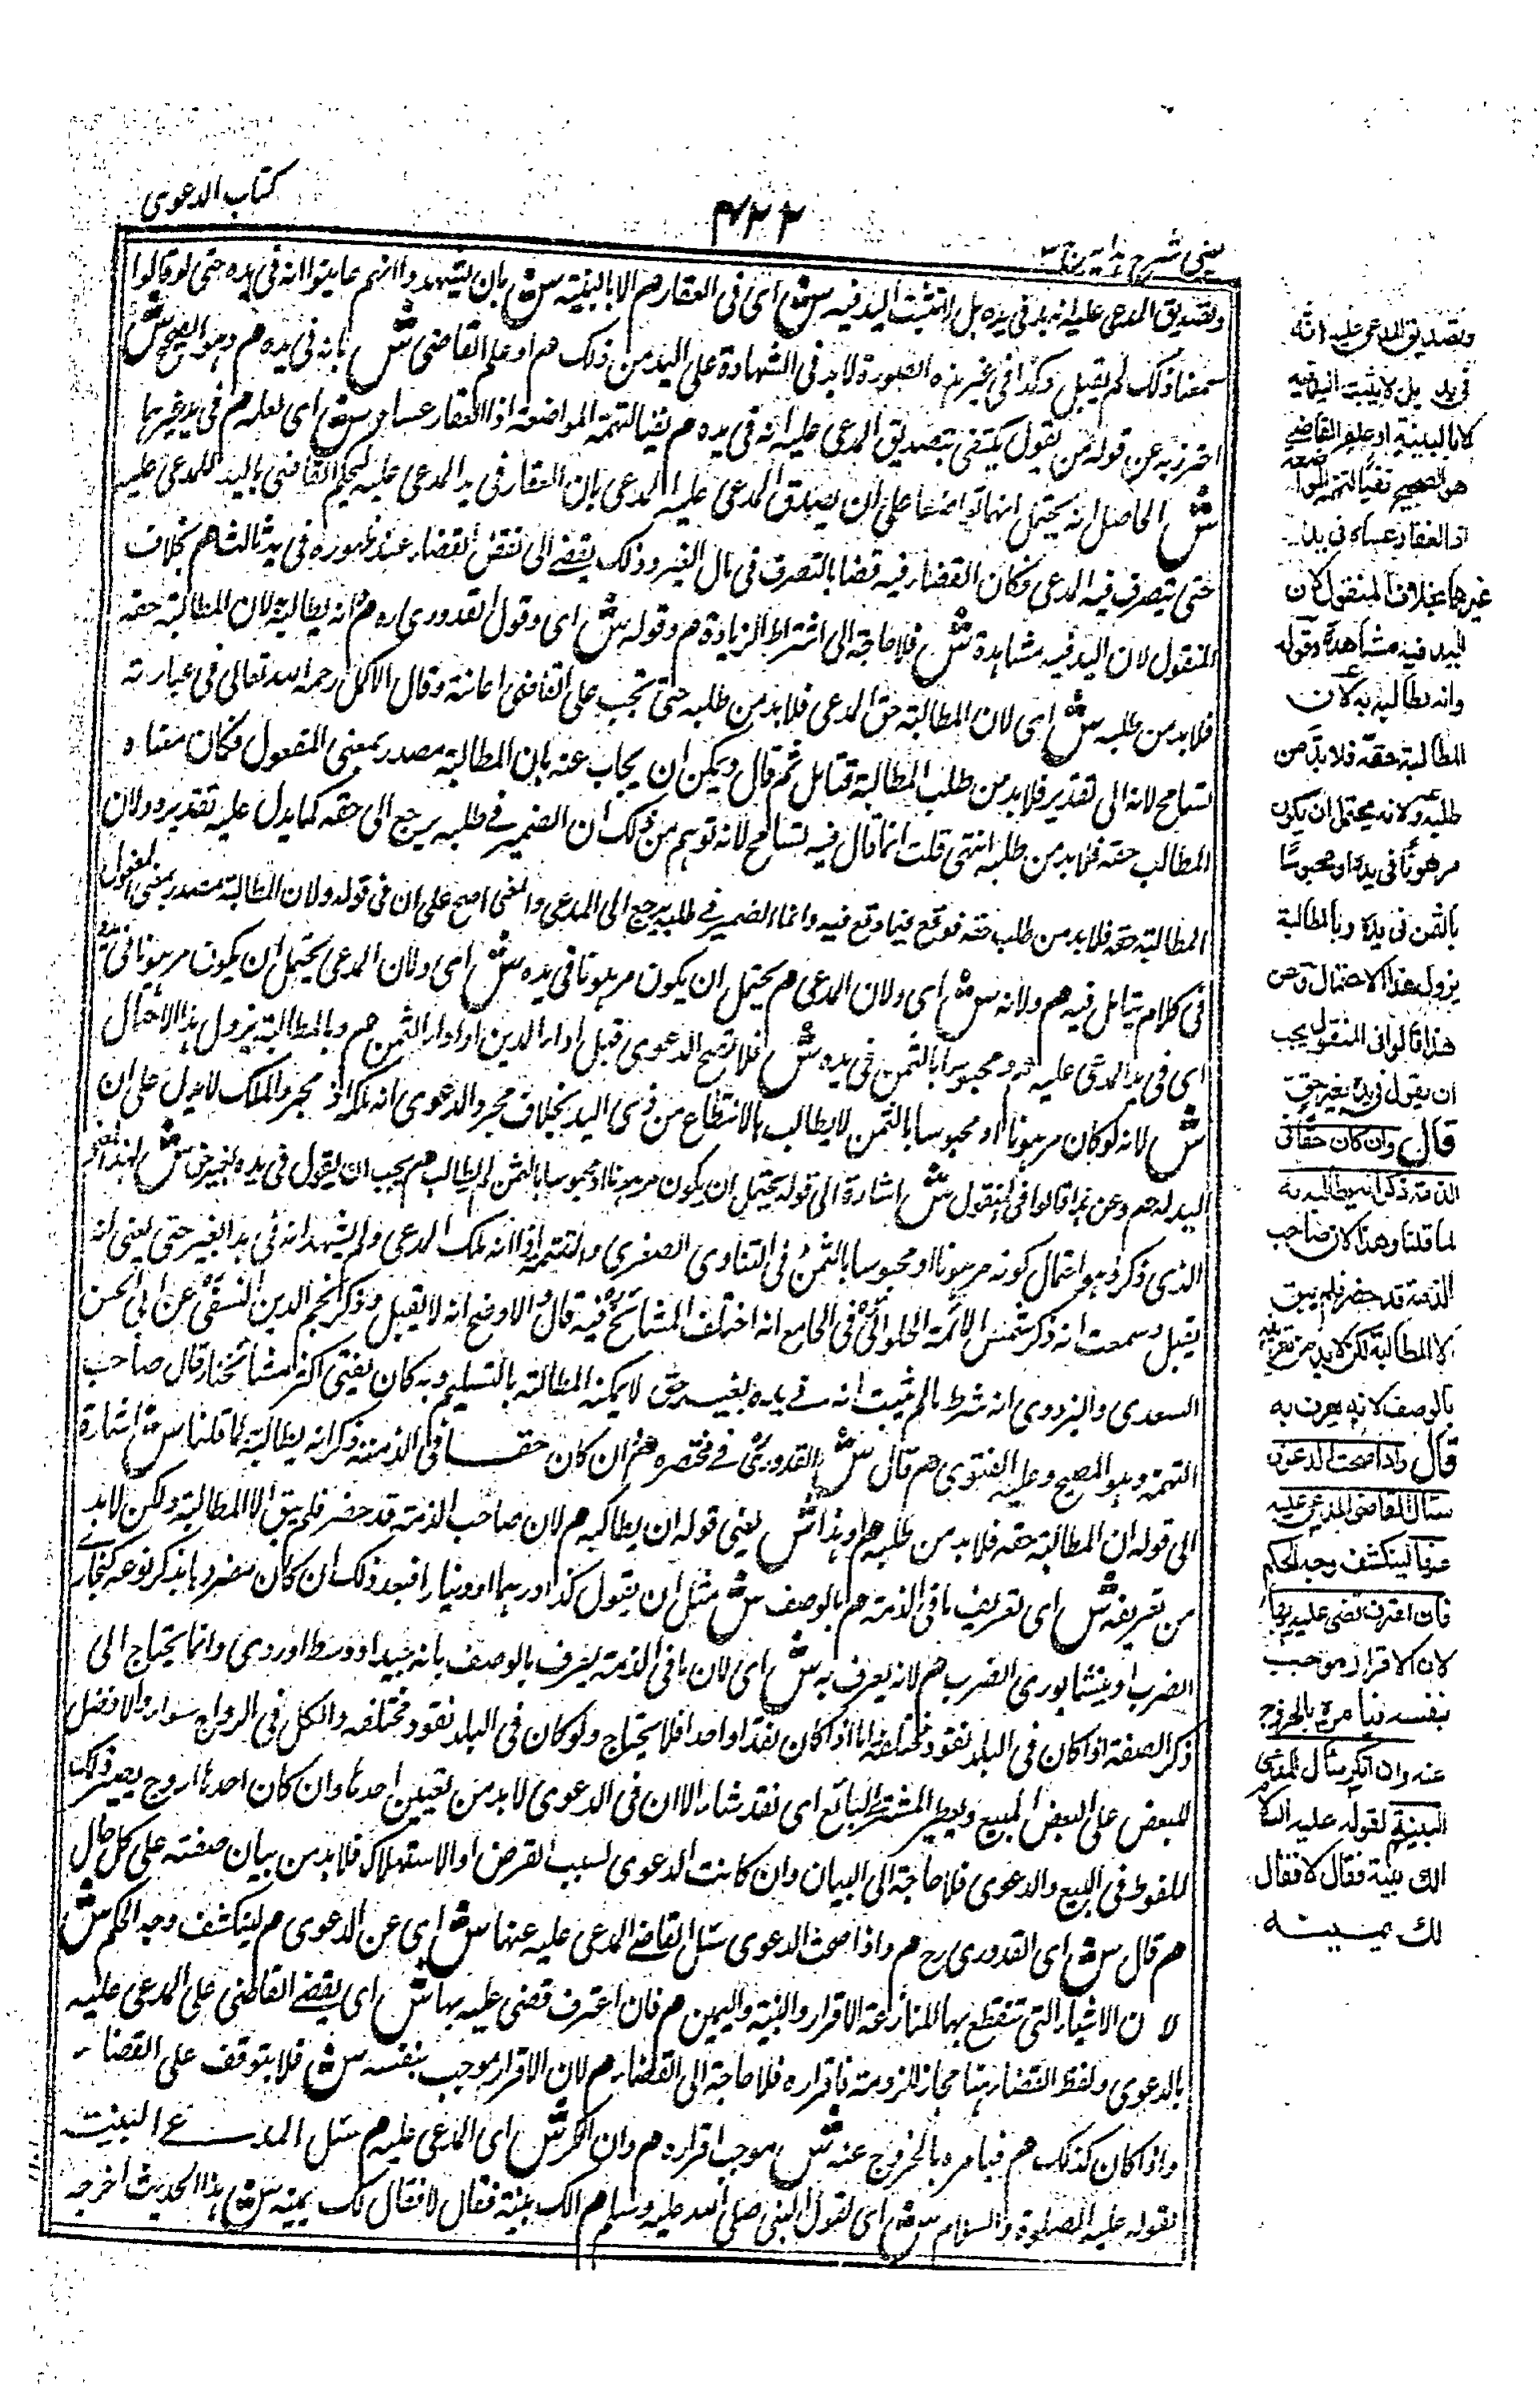 كتاب الدعوى
٤٣٣
عینی شرح ہدایہ ج ٣
وتصديق المدعى عليه انه فى يده بل لا تثبت اليد فيه ش اى فى العقار هم الا بالبينة ش بان يشهدوا انهم عاينوا انه فى يده حتى لو قالوا
سمعنا ذلك لم يقبل وكذا فى غير هذه الصورة لا بد فى الشهادة على اليد من ذلك هم او علم القاضى ش بانه فى يده هم وهو الصحيح ش
احترز به عن قول من يقول يكتفى بتصديق المدعى عليه انه فى يده هم نفيا لتهمة المواضعة اذ العقار عساه ش اى لعله هم فى يد غيرهما
ش الحاصل انه يحتمل انهما تواضعا على ان يصدق المدعى عليه المدعى بان العقار فى يد المدعى عليه ليحكم القاضى باليد للمدعى عليه
حتى يتصرف فيه المدعى فكان القضاء فيه قضا بالتصرف فى مال الغير وذلك يفضى الى نقض القضاء عند ظهوره فى يد ثالث هم بخلاف
المنقول لان اليد فيه مشاهدة ش فلا حاجة الى اشتراط الزيادة هم وقوله ش اى وقول القدورى ره هم انه يطالبه لان المطالبة حقه
فلا بد من طلبه ش اى لان المطالبة حق المدعى فلا بد من طلبه حتى تجب على القاضى اعانته وقال الاكمل رحمه الله تعالى فى عبارته
تسامح لانه الى تقدير فلا بد من طلب المطالبة فتامل ثم قال ويمكن ان يجاب عنه بان المطالبة مصدر بمعنى المفعول فكان معناه
المطالب حقه فلا بد من طلبه انتهى قلت انما قال فيه تسامح لانه توهم من ذلك ان الضمير فى طلبه يرجع الى حقه كما يدل عليه تقديره ولان
المطالبة حقه فلا بد من طلب حقه فوقع فيما وقع فيه وانما الضمير فى طلبه يرجع الى المدعى والمعنى اصح على ان فى قوله ولان المطالبة مصدر بمعنى المفعول
فى كلام يتامل فيه هم ولانه ش اى ولان المدعى هم يحتمل ان يكون مرهونا فى يده ش اى ولان المدعى يحتمل ان يكون مرهونا فى يده
اى فى يد المدعى عليه هم او محبوسا بالثمن فى يده ش فلا تصح الدعوى قبل اداء الدين او اداء الثمن هم وبالمطالبة يزول هذا الاحتمال
ش لانه لو كان مرهونا او محبوسا بالثمن لا يطالب بالانتظاع من ذى اليد بخلاف مجرد الدعوى انه ملكه اذ مجرد الملك لا يدل على ان
اليد له هم وعن هذا قالوا فى المنقول ش اشارة الى قوله يحتمل ان يكون مرهونا او محبوسا بالثمن لم يطالب هم يجب ان يقول فى يده بغير حق ش
الذى ذكره وهو احتمال كونه مرهونا او محبوسا بالثمن فى الفتاوى الصغرى والتتمة اذا انه ملك المدعى ولم يشهد انه فى يد الغير حتى يعنى انه
يقبل وسمعت انه ذكر شمس الائمة الحلوائى فى الجامع انه اختلف المشائخ فيه قال والاوضح انه لا يقبل وذكر نجم الدين النسفى عن ابى الحسن
السعدى والبزدوى انه شرط مالم يثبت انه فى يده بغير حق لا يمكنه المطالبة بالتسليم وبه كان يفتى اكثر مشائخنا وقال صاحب
التتمة وهو الصحيح وعليه الفتوى هم قال ش القدورى فى مختصره هم ان كان حقا فى الذمة ذكر انه يطالبه لما قلنا ش اشارة
الى قوله ان المطالبة حقه فلا بد من طلبه هم وهذا ش يعنى قوله ان يطالبه هم لان صاحب الذمة قد حضر فلم يبق الا المطالبة ولكن لا بد
من تعريفه ش اى تعريف ما فى الذمة هم بالوصف ش مثل ان يقول كذا درهما او دينارا فبعد ذلك ان كان مضروبا يذكر نوعه كبخارى
الضرب او نيشابورى الضرب هم لانه يعرف به ش اى لان ما فى الذمة يعرف بالوصف بانه جيد او وسط او ردى وانما يحتاج الى
ذكر الصفة اذا كان فى البلد نقود مختلفة اما اذا كان نقدا واحدا فلا يحتاج ولو كان فى البلد نقود مختلفة والكل فى الرواج سواء ولا فضل
للبعض على البعض المبيع ويعطى المشترى البائع اى نقد شاء الا ان فى الدعوى لا بد من تعيين احدها وان كان احدها اروج يصير ذلك
كالملفوظ فى البيع والدعوى فلا حاجة الى البيان وان كانت الدعوى بسبب القرض او الاستهلاك فلا بد من بيان صفته على كل حال
هم قال ش اى القدورى رح هم واذا صحت الدعوى سئل القاضى المدعى عليه عنها ش اى عن الدعوى هم لينكشف وجه الحكم ش
لان الاشياء التى تنقطع بها المنازعة الاقرار والبينة واليمين هم فان اعترف قضى عليه بها ش اى يقضى القاضى على المدعى عليه
بالدعوى ولفظ القضاء هنا مجاز للزومه باقراره فلا حاجة الى القضاء هم لان الاقرار موجب بنفسه ش فلا يتوقف على القضاء
واذا كان كذلك هم فيامره بالخروج عنه ش موجب اقراره هم وان انكر ش اى المدعى عليه هم سئل المدعى البينة
لقوله عليه الصلوة والسلام ش اى لقول النبى صلى الله عليه وسلم هم الك بينة فقال لا فقال لك يمينه ش هذا الحديث اخرجه
وتصديق المدعى عليه انه
فى يده بل لا يثبت اليد فيه
الا بالبينة او علم القاضى
هو الصحيح نفيا لتهمة المواضعة
اذ العقار عساه فى يد
غيرهما بخلاف المنقول لان
اليد فيه مشاهدة وقوله
وانه يطالبه به لان
المطالبة حقه فلا بد من
طلبه ولانه يحتمل ان يكون
مرهونا فى يده او محبوسا
بالثمن فى يده وبالمطالبة
يزول هذا الاحتمال وعن
هذا قالوا فى المنقول يجب
ان يقول فى يده بغير حق
قال وان كان حقا فى
الذمة ذكر انه يطالبه به
لما قلنا وهذا لان صاحب
الذمة قد حضر فلم يبق
الا المطالبة لكن لا بد من تعريفه
بالوصف لانه يعرف به
قال واذا صحت الدعوى
سأل القاضى المدعى عليه
عنها لينكشف وجه الحكم
فان اعترف قضى عليه بها
لان الاقرار موجب
بنفسه فيامره بالخروج
عنه وان انكر سأل المدعى
البينة لقوله عليه السلام
الك بينة فقال لا فقال
لك يمينه